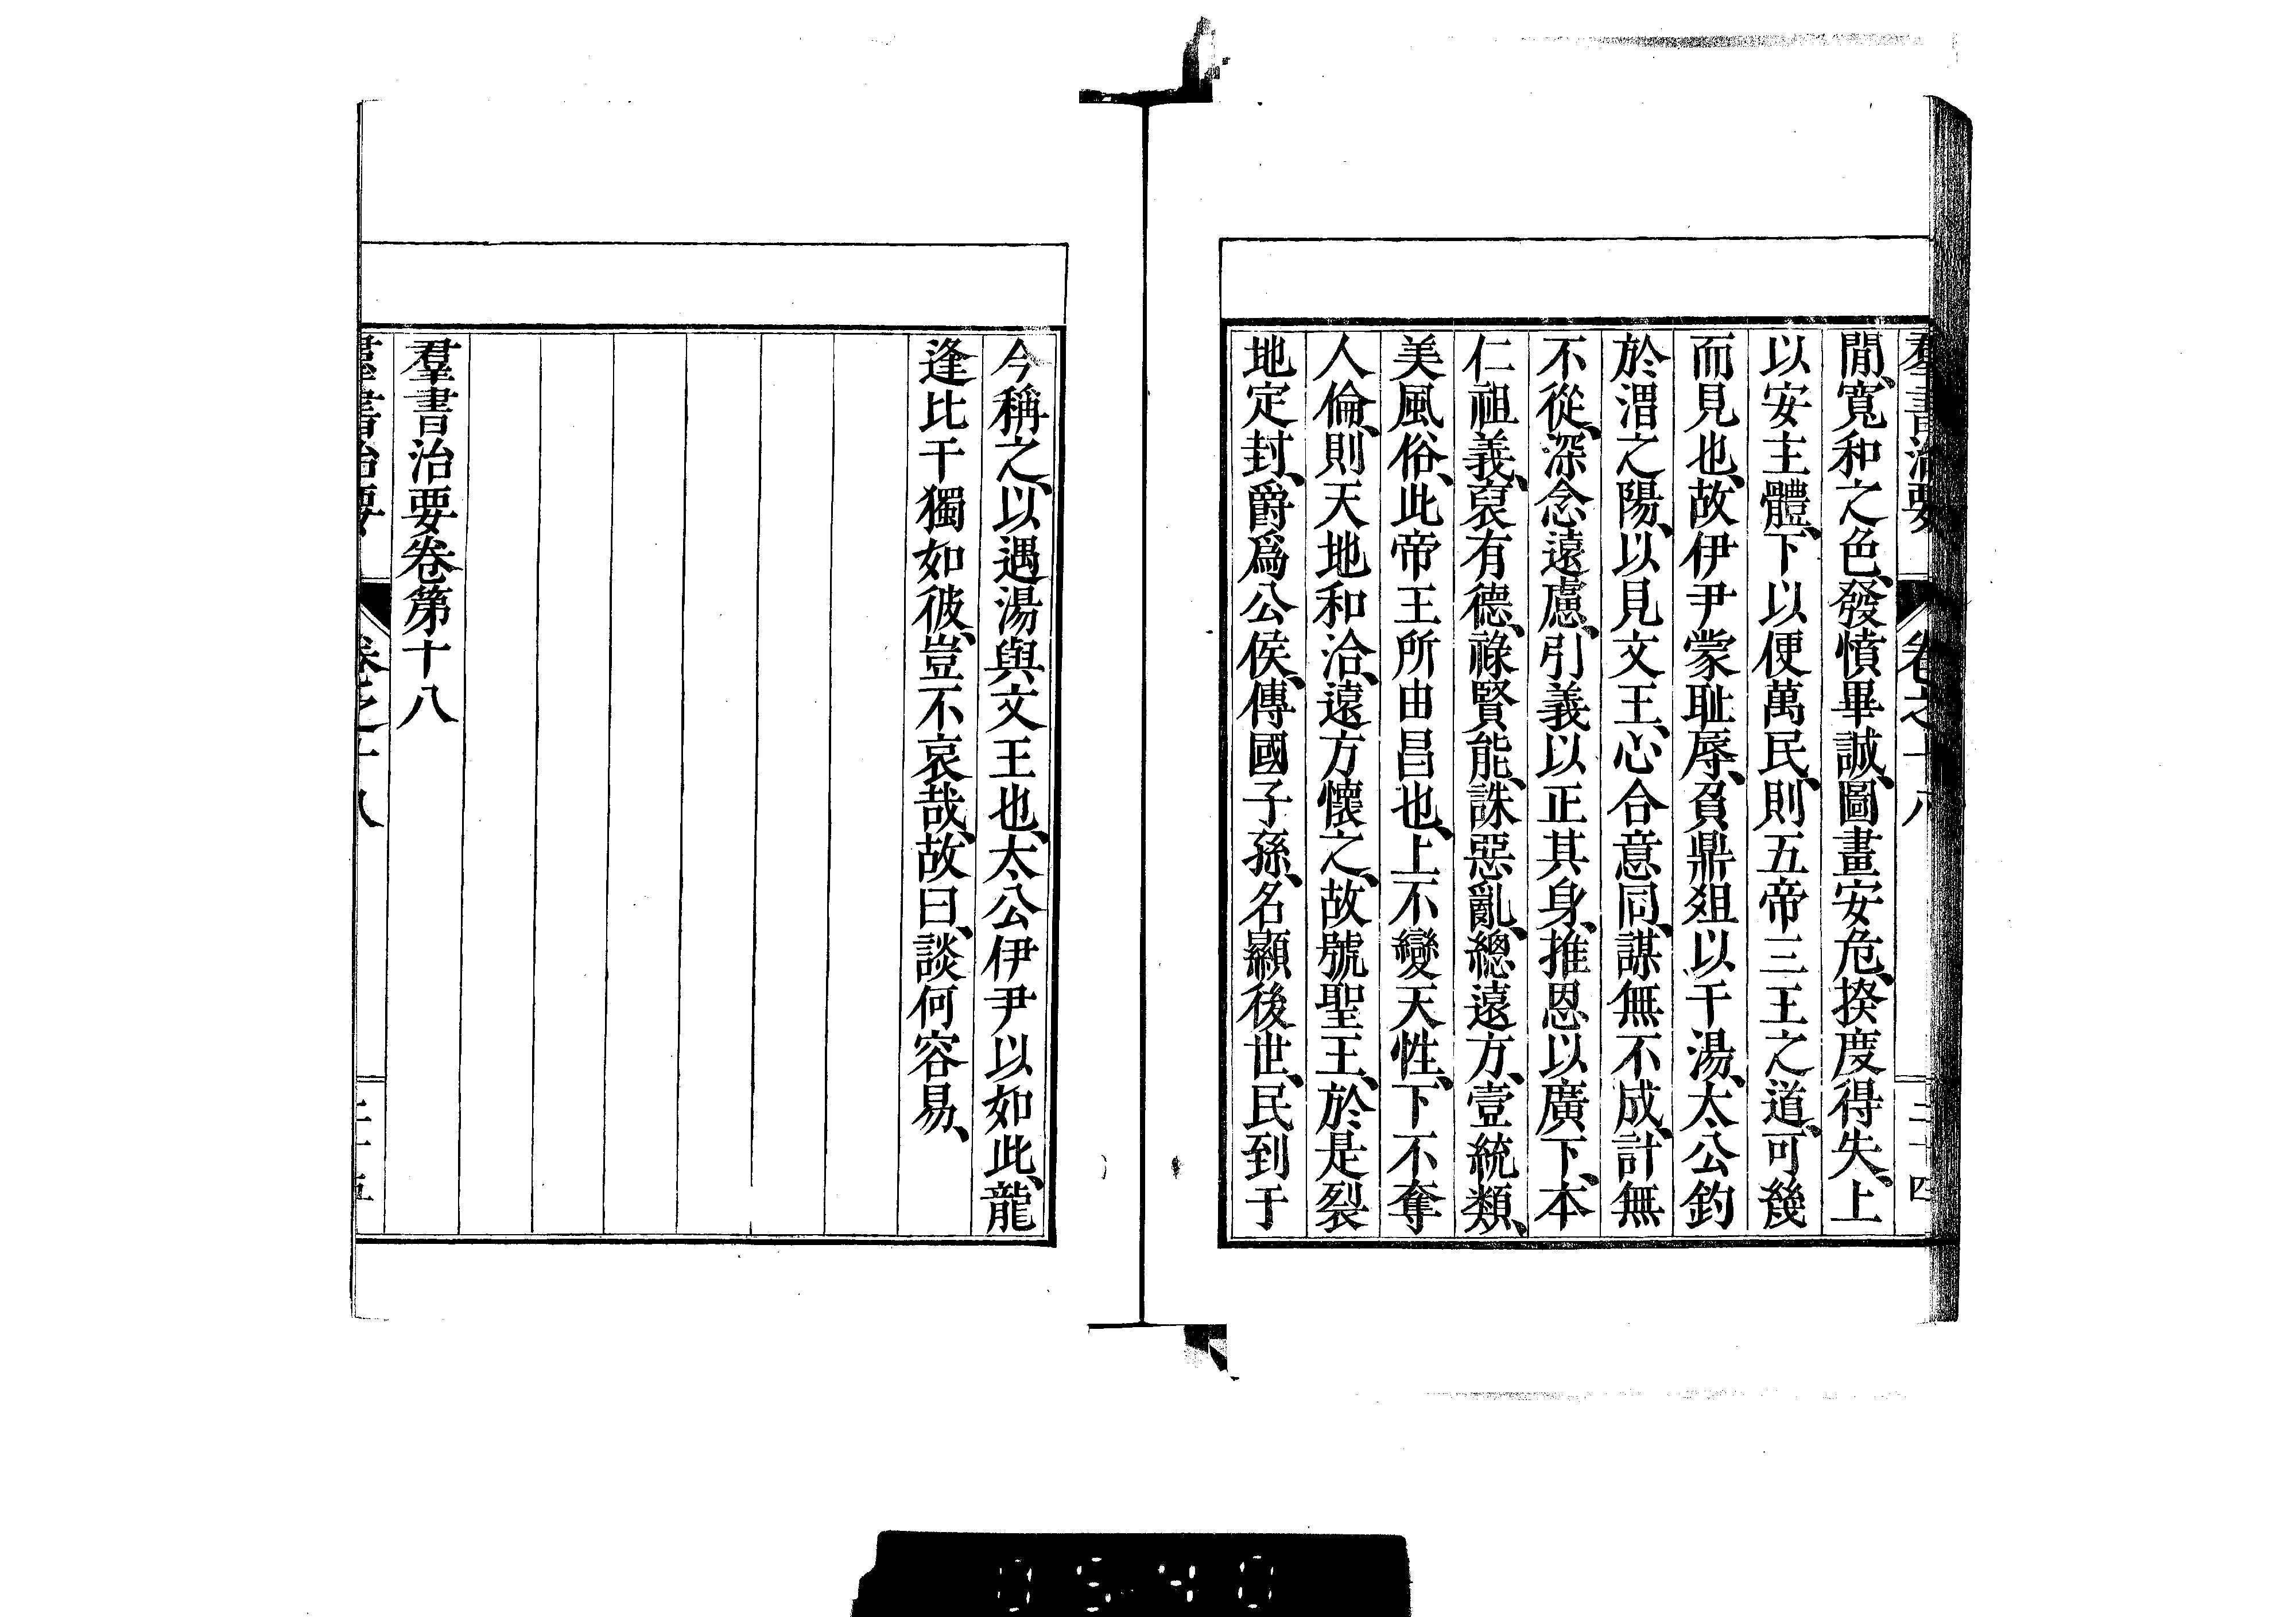 羣書治要 卷之十八 二十四
閒、寬和之色、發憤畢誠、圖畫安危、揆度得失、上
以安主體、下以便萬民、則五帝三王之道、可幾
而見也、故伊尹蒙耻辱、負鼎俎以干湯、太公釣
於渭之陽、以見文王、心合意同、謀無不成、計無
不從、深念遠慮、引義以正其身、推恩以廣下、本
仁祖義、裒有德、祿賢能、誅惡亂、總遠方、壹統類、
美風俗、此帝王所由昌也、上不變天性、下不奪
人倫、則天地和洽、遠方懷之、故號聖王、於是裂
地定封、爵爲公侯、傳國子孫、名顯後世、民到于
今稱之、以遇湯與文王也、太公伊尹以如此、龍
逢比干獨如彼、豈不哀哉、故曰、談何容易、
羣書治要卷第十八
羣書治要 卷之十八 二十五
0540